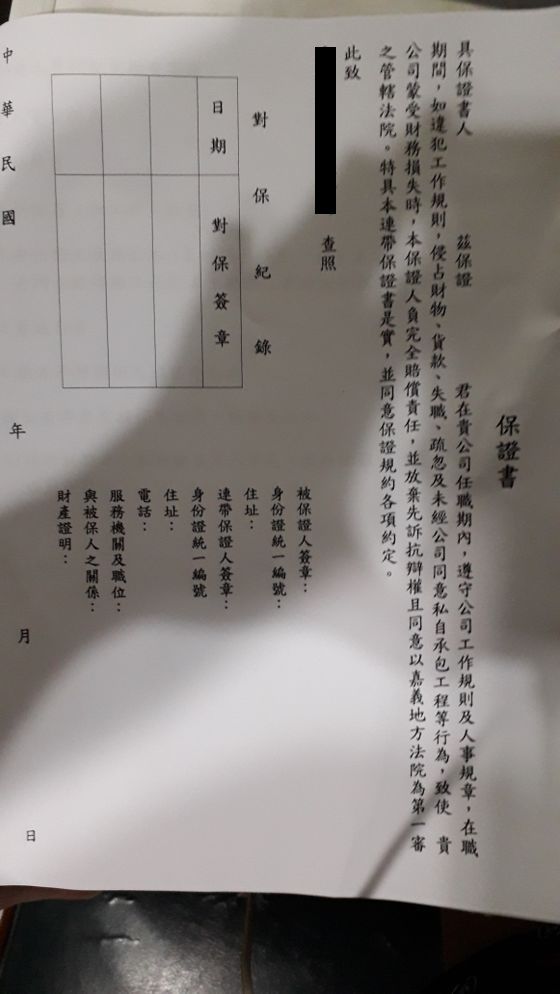 保證書
具保證書人　茲保證　君在貴公司任職期內，遵守公司工作規則及人事規章，在職
期間，如違犯工作規則，侵占財物、貨款、失職、疏忽及未經公司同意私自承包工程等行為，致使　貴
公司蒙受財務損失時，本保證人負完全賠償責任，並放棄先訴抗辯權且同意以嘉義地方法院為第一審
之管轄法院。特具本連帶保證書是實，並同意保證規約各項約定。
此致
查照
被保證人簽章：
身份證統一編號：
住址：
連帶保證人簽章：
身份證統一編號
住址：
電話：
服務機關及職位：
與被保人之關係：
財產證明：
對保紀錄
日期　對保簽章
中華民國　年　月　日